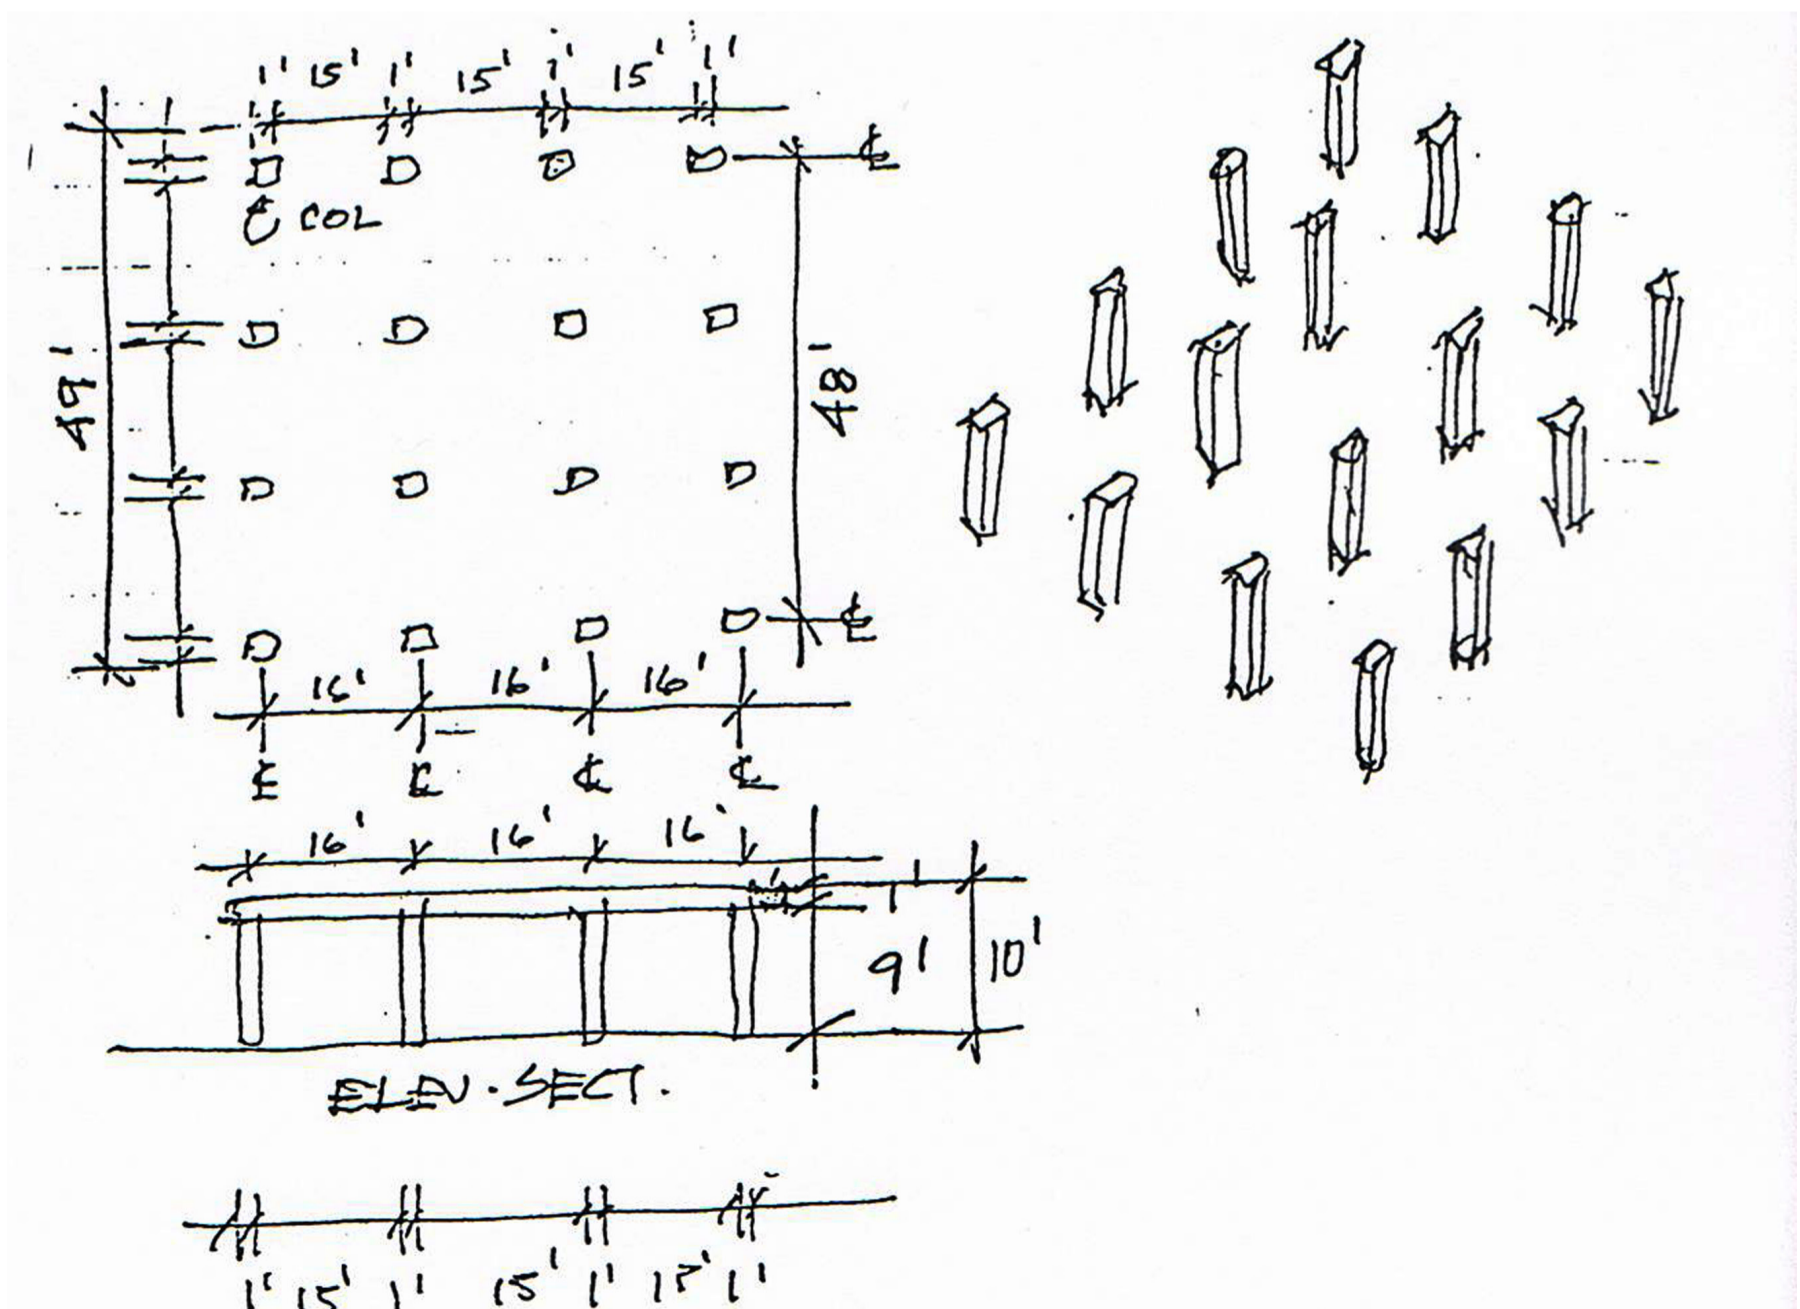 1' 15' 1' 15' 1' 15' 1'
℄
℄ COL
49'
48'
℄
16' 16' 16'
℄ ℄ ℄ ℄
16' 16' 16'
1'
9' 10'
ELEV. SECT.
1' 15' 1' 15' 1' 15' 1'